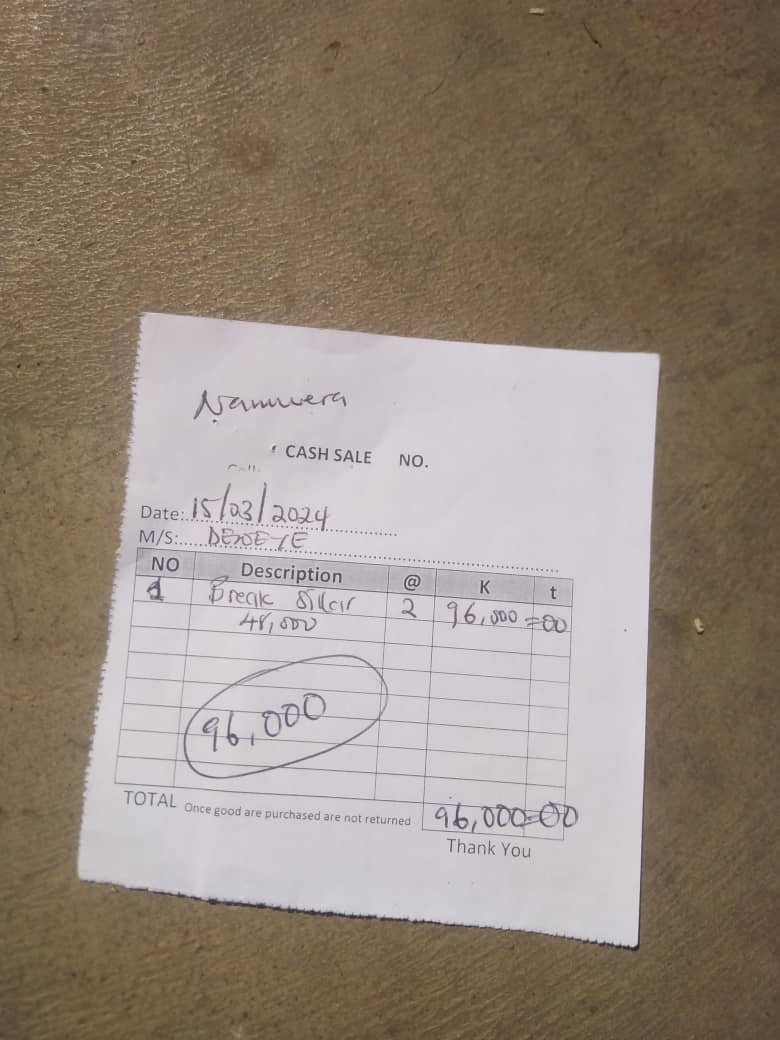 Namwera
CASH SALE NO.
Date: 15/03/2024
M/S:
NO Description @ K t
1 Break 2 96,000 = 00
48,000
96,000
TOTAL Once good are purchased are not returned 96,000=00
Thank You